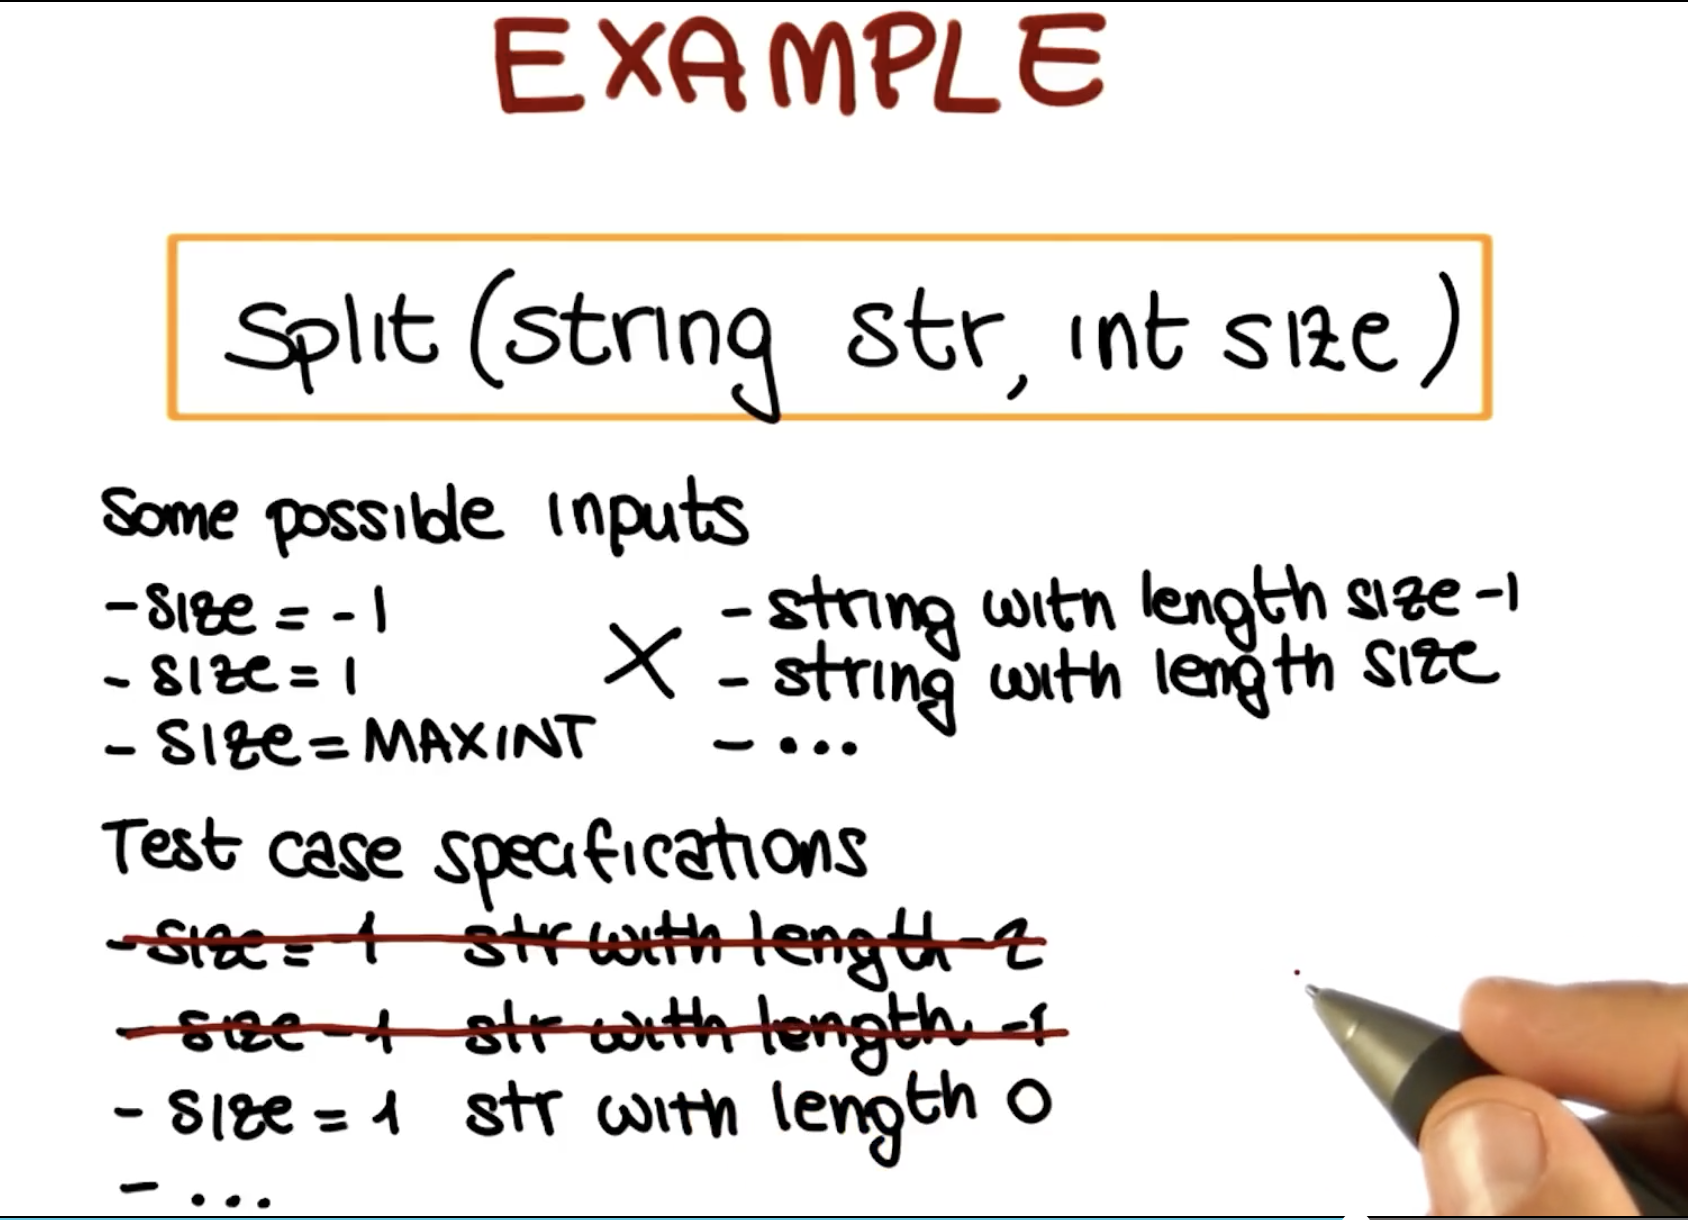 EXAMPLE
Split (string str, int size)
Some possible inputs
- size = -1
- size = 1
- size = MAXINT
X
- string with length size -1
- string with length size
- ...
Test case specifications
- size = -1 str with length -2
- size -1 str with length -1
- size = 1 str with length 0
- ...